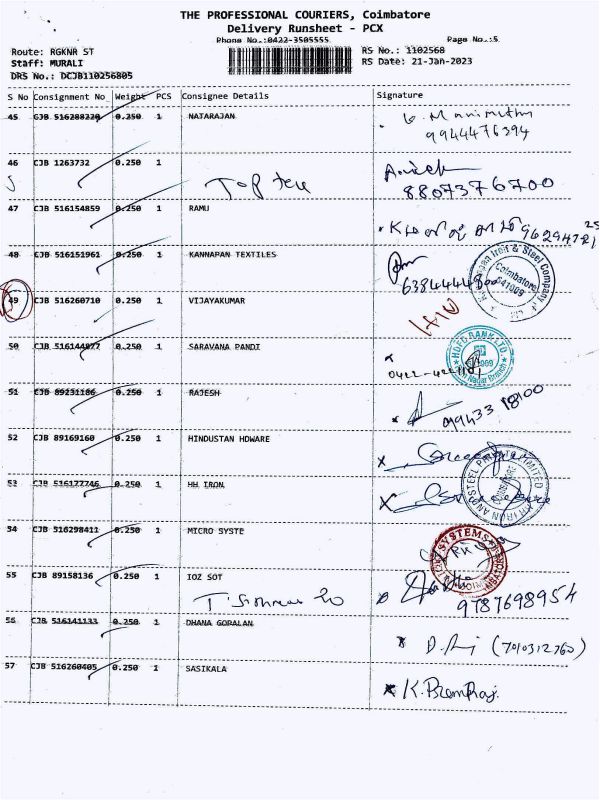 THE PROFESSIONAL COURIERS, Coimbatore
Delivery Runsheet - PCX
Phone No.:0422-3505555 Page No.:5
Route: RGKNR ST RS No.: 1102568
Staff: MURALI RS Date: 21-Jan-2023
DRS No.: DCJB110256805
S No Consignment No Weight PCS Consignee Details Signature
45 CJB 516288220 0.250 1 NATARAJAN
9944476394
46 CJB 1263732 0.250 1
8807376700
47 CJB 516154859 0.250 1 RAMU
48 CJB 516151961 0.250 1 KANNAPAN TEXTILES
Iron & Steel Company
Coimbatore
641009
49 CJB 516260710 0.250 1 VIJAYAKUMAR
50 CJB 516144877 0.250 1 SARAVANA PANDI
HDFC BANK LTD.
Nagar Branch
51 CJB 89231186 0.250 1 RAJESH
52 CJB 89169160 0.250 1 HINDUSTAN HDWARE
53 CJB 516177746 0.250 1 HH IRON
IRON AND STEEL PRIVATE LIMITED
54 CJB 516298411 0.250 1 MICRO SYSTE
SYSTEMS
55 CJB 89158136 0.250 1 IOZ SOT
9787698954
56 CJB 516141133 0.250 1 DHANA GOPALAN
(7010312760)
57 CJB 516260405 0.250 1 SASIKALA
K. PremRaj.